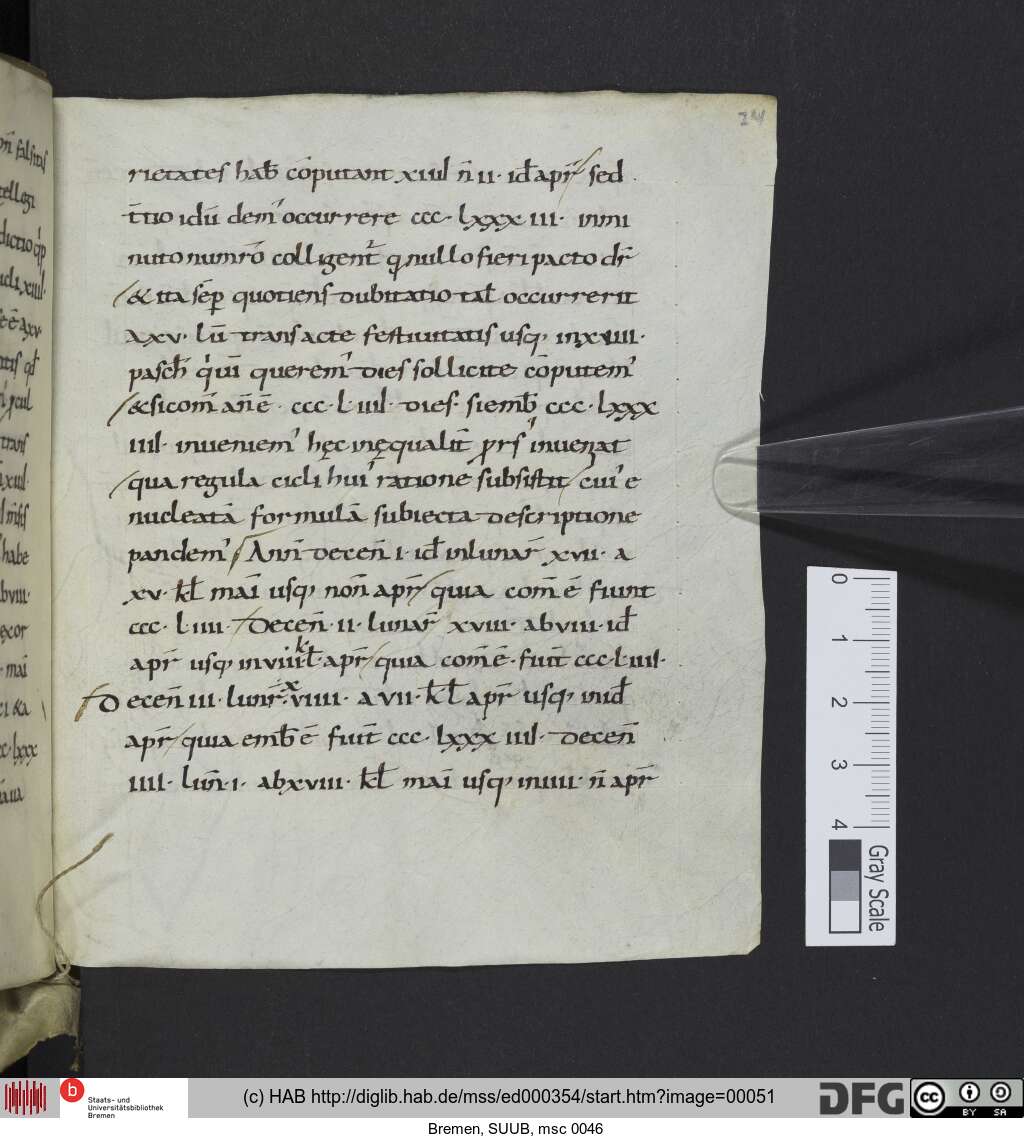 24
rietates hab̄ cōputant xiiii n̄ ii· id̄ apr̄ sed
t̄tio idū dem' occurrere ccc· lxxx iii· in mi
nuto num̄ro colligent̄ q nullo fieri pacto dr̄
& ita sēp quotiens dubitatio tal̄ occurrerit
a xv· lū transacte festiuitatis usq, in xiiii·
pasch̄ q'ui querem' dies sollicite cōputem'
& si com̄ an̄ ē· ccc· l· iiii· dies· si emb̄ ccc· lxxx
iiii· inueniem' hęc inęqualit̄
qua regula cicli hui' ratione subsistit cui' e
nucleatā formulā subiecta descriptione
pandem' Ann̄ decen̄ i· id̄ in lunar̄ xvii· a
xv· kl̄ mai usq, non̄ apr̄ quia com̄ ē fiunt
ccc· l iiii· Decen̄ ii· lunar̄ xviii· ab viii· id̄
apr̄ usq, in viii kl̄ apr̄ quia com̄ ē· fiut̄ ccc· l iiii·
Decen̄ iii· lunr̄· xviiii· a vii· kl̄ apr̄ usq, in id̄
apr̄ quia emb̄ ē fiut̄ ccc· lxxx iiii· Decen̄
iiii· lun̄· i· ab xviii· kl̄ mai usq, in iiii· n̄ apr̄
0
1
2
3
4
Gray Scale
Staats- und
Universitätsbibliothek
Bremen
(c) HAB http://diglib.hab.de/mss/ed000354/start.htm?image=00051
DFG
cc BY SA
Bremen, SUUB, msc 0046